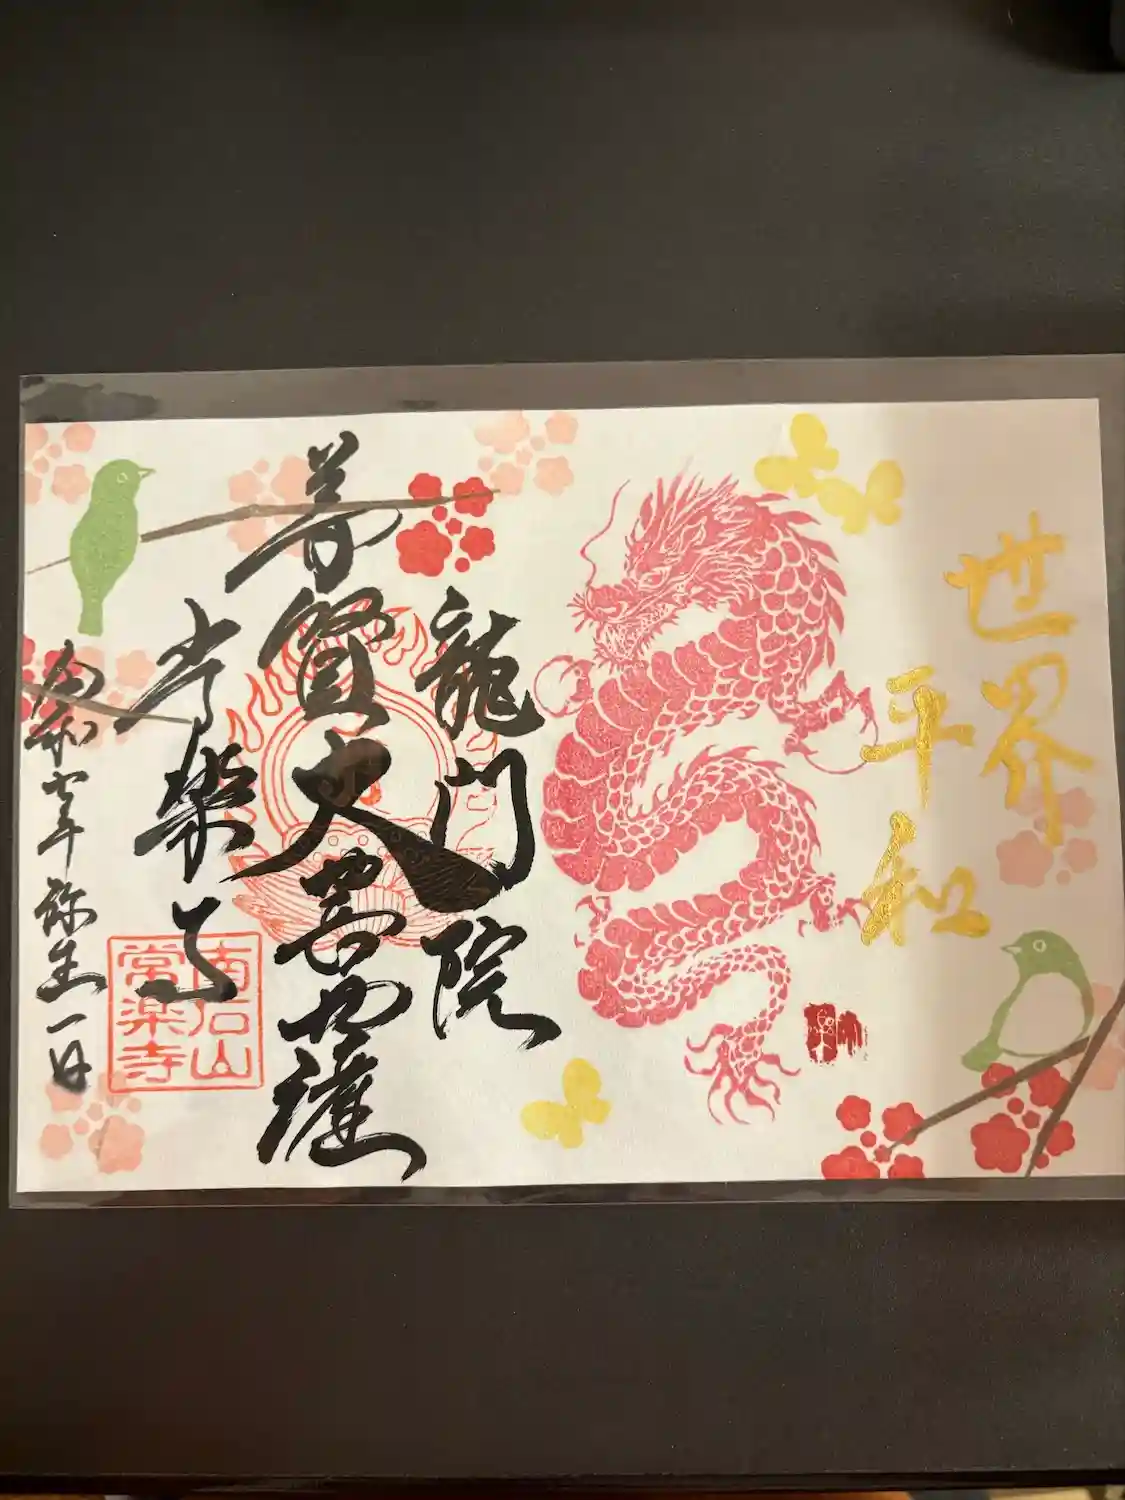 世界
平和
龍門院
普賢大菩薩
常楽寺
令和六年弥生一日
南石山
常楽寺